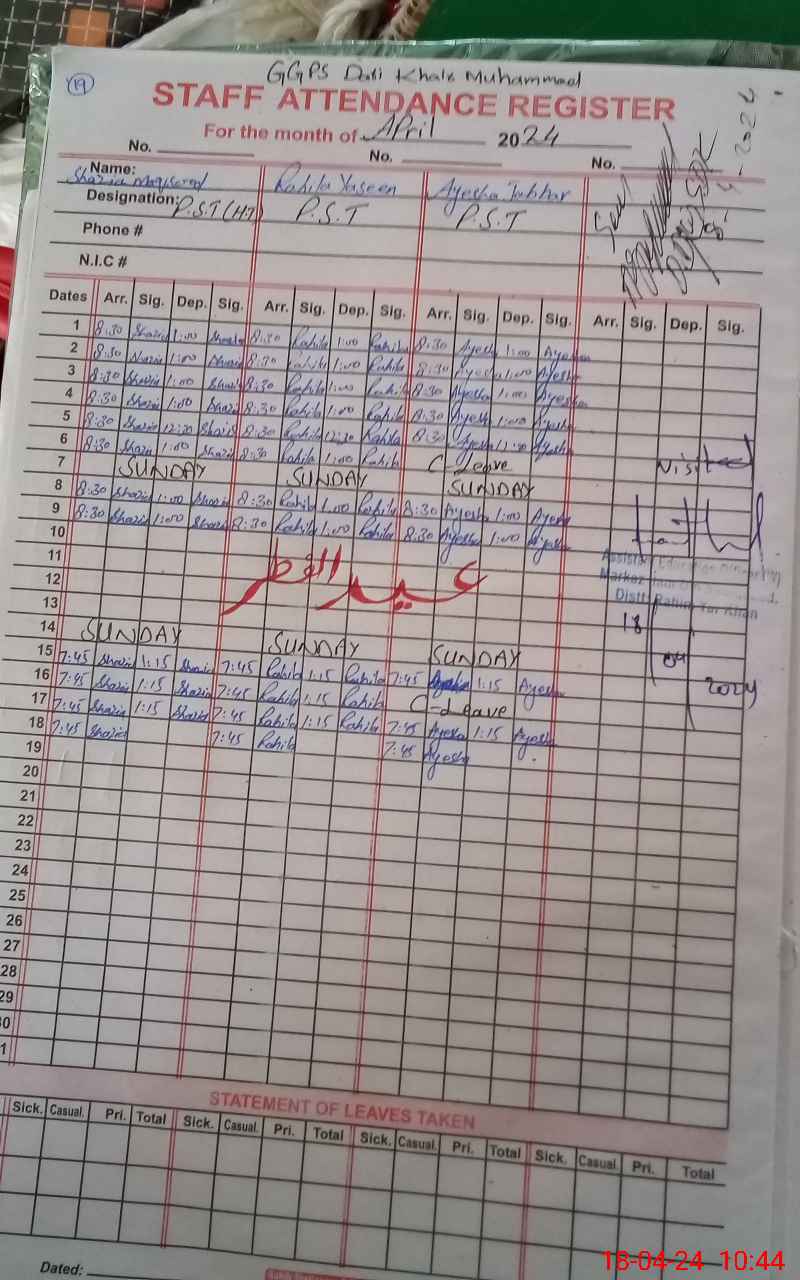 19
GGPS Dati Khair Muhammad
STAFF ATTENDANCE REGISTER
For the month of April 2024
No. No. No.
Name: Shazia Maqsood Rahila Yaseen Ayesha Jabbar
Designation: P.S.T (HT) P.S.T P.S.T
Phone #
N.I.C #
Dates Arr. Sig. Dep. Sig. Arr. Sig. Dep. Sig. Arr. Sig. Dep. Sig. Arr. Sig. Dep. Sig.
1 8:30 Shazia 1:00 Shazia 8:30 Rahila 1:00 Rahila 8:30 Ayesha 1:00 Ayesha
2 8:30 Shazia 1:00 Shazia 8:30 Rahila 1:00 Rahila 8:30 Ayesha 1:00 Ayesha
3 8:30 Shazia 1:00 Shazia 8:30 Rahila 1:00 Rahila 8:30 Ayesha 1:00 Ayesha
4 8:30 Shazia 1:00 Shazia 8:30 Rahila 1:00 Rahila 8:30 Ayesha 1:00 Ayesha
5 8:30 Shazia 12:30 Shazia 8:30 Rahila 12:30 Rahila 8:30 Ayesha 12:30 Ayesha
6 8:30 Shazia 1:00 Shazia 8:30 Rahila 1:00 Rahila C-Leave
7 SUNDAY SUNDAY SUNDAY
Visited
8 8:30 Shazia 1:00 Shazia 8:30 Rahila 1:00 Rahila 8:30 Ayesha 1:00 Ayesha
9 8:30 Shazia 1:00 Shazia 8:30 Rahila 1:00 Rahila 8:30 Ayesha 1:00 Ayesha
10
11
12 عيد الفطر
13
Assistant Education Officer
Markaz
Distt. Rahim Yar Khan
18
04
2024
14 SUNDAY SUNDAY SUNDAY
15 7:45 Shazia 1:15 Shazia 7:45 Rahila 1:15 Rahila 7:45 Ayesha 1:15 Ayesha
16 7:45 Shazia 1:15 Shazia 7:45 Rahila 1:15 Rahila C-Leave
17 7:45 Shazia 1:15 Shazia 7:45 Rahila 1:15 Rahila 7:45 Ayesha 1:15 Ayesha
18 7:45 Shazia 7:45 Rahila 7:45 Ayesha
19
20
21
22
23
24
25
26
27
28
29
30
31
STATEMENT OF LEAVES TAKEN
Sick. Casual. Pri. Total Sick. Casual. Pri. Total Sick. Casual. Pri. Total Sick. Casual. Pri. Total
Dated:
18-04-24 10:44